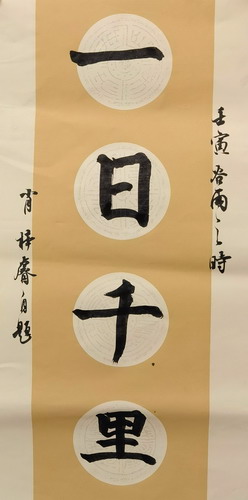 一日千里
壬寅谷雨之时
肖梓睿自题